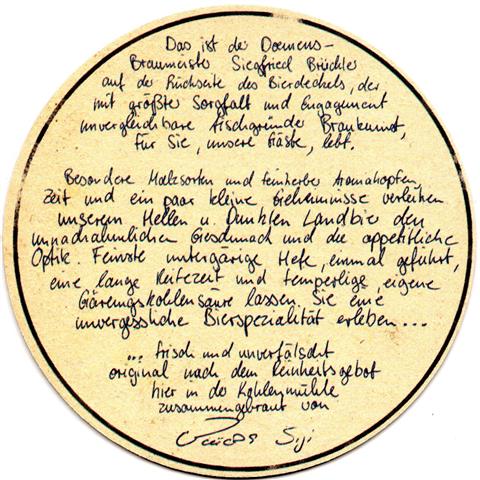 Das ist der Doemens-
Braumeister Siegfried Brückler
auf der Rückseite des Bierdeckels, der
mit größter Sorgfalt und Engagement
unvergleichbare Aischgründer Braukunst,
für Sie, unsere Gäste, lebt.
Besondere Malzsorten und feinherbe Aromahopfen,
Zeit und ein paar kleine Geheimnisse verleihen
unserem Hellen u. Dunklen Landbier den
unnachahmlichen Geschmack und die appetitliche
Optik. Feinste untergärige Hefe, einmal geführt,
eine lange Reifezeit und feinperlige, eigene
Gärungskohlensäure lassen Sie eine
unvergessliche Bierspezialität erleben...
... frisch und unverfälscht
original nach dem Reinheitsgebot
hier in der Kohlenmühle
zusammengebraut von
Sigi